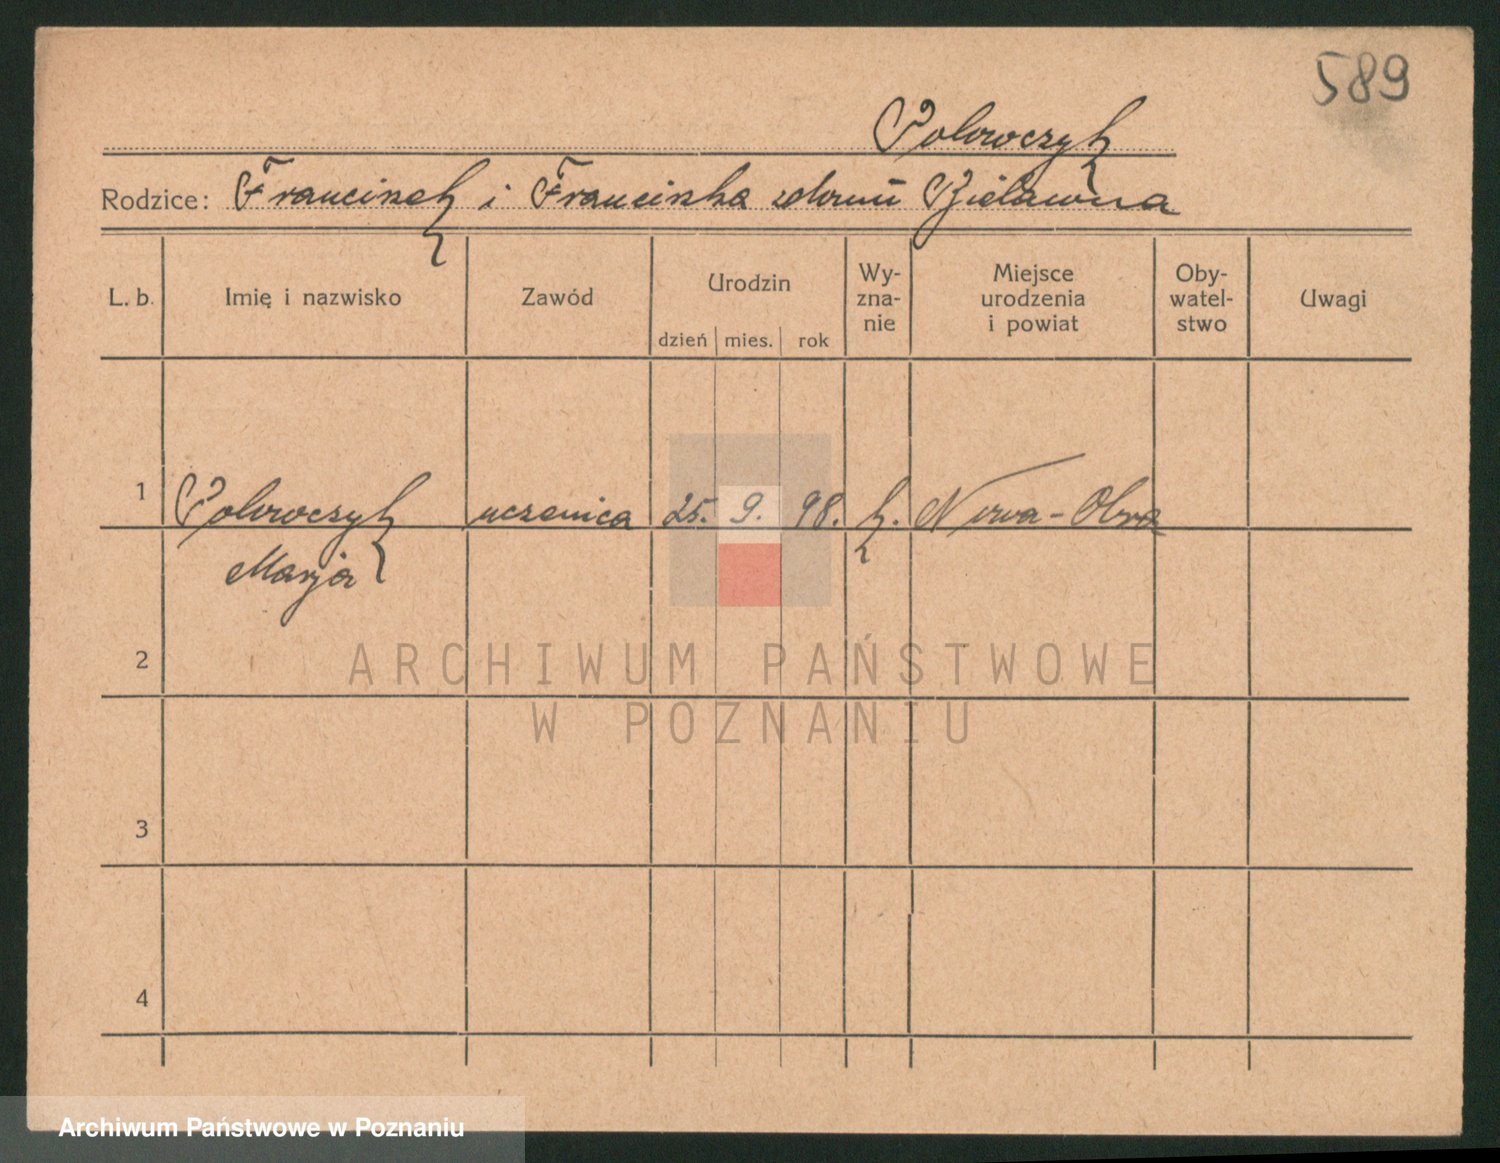 589
Polowczyk
Rodzice: Franciszek i Franciszka z domu Bielawna
L. b. Imię i nazwisko Zawód Urodzin dzień mies. rok Wy-zna-nie Miejsce urodzenia i powiat Oby-watel-stwo Uwagi
1 Polowczyk uczenica 25. 9. 98. k. Nowa-Obra
Marja
2
ARCHIWUM PAŃSTWOWE
W POZNANIU
3
4
Archiwum Państwowe w Poznaniu